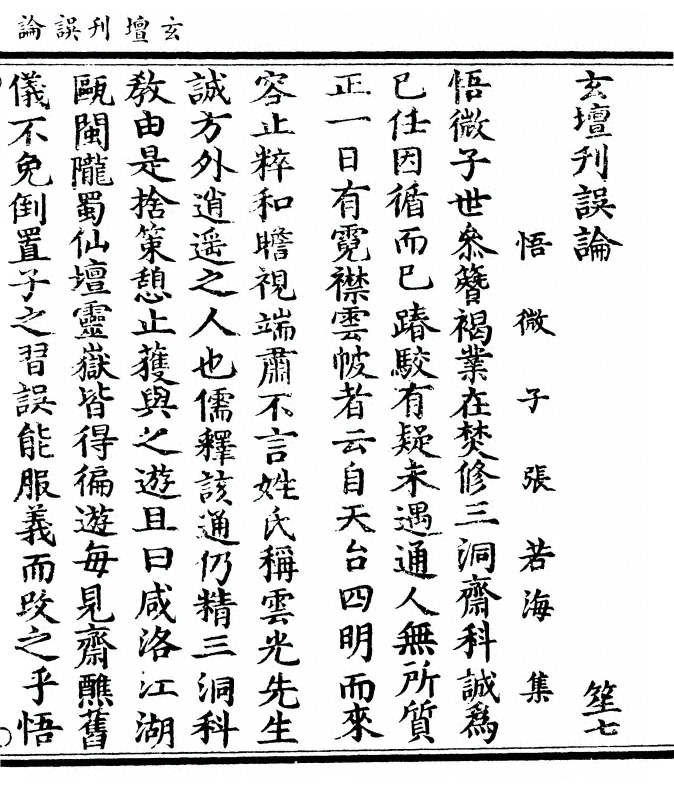 玄壇刊誤論
玄壇刊誤論
笙七
悟微子張若海集
悟微子世叅簪褐業在焚修三洞齋科誠爲
已任因循而已踳駮有疑未遇通人無所質
正一日有霓襟雲帔者云自天台四明而來
容止粹和瞻視端肅不言姓氏稱雲光先生
誠方外逍遥之人也儒釋該通仍精三洞科
教由是捨策憩止獲與之遊且曰咸洛江湖
甌閩隴蜀仙壇靈嶽皆得徧遊每見齋醮舊
儀不免倒置子之習誤能服義而改之乎悟